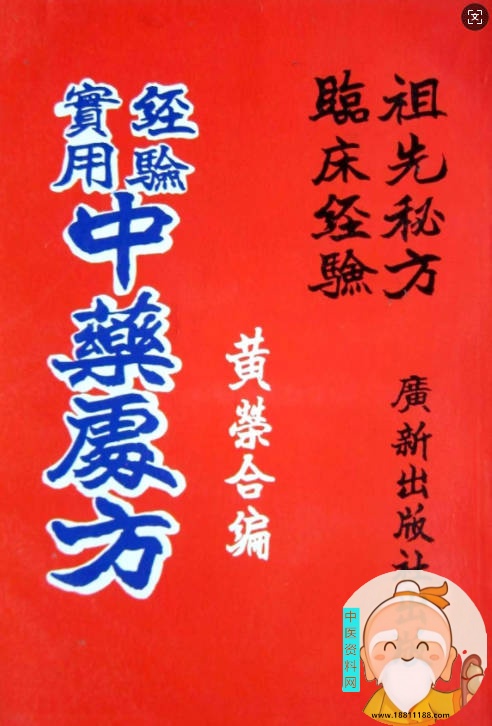 祖先秘方
臨床經驗
廣新出版社
黃榮合編
經驗
實用
中藥處方
中医资料网
www.18811188.com